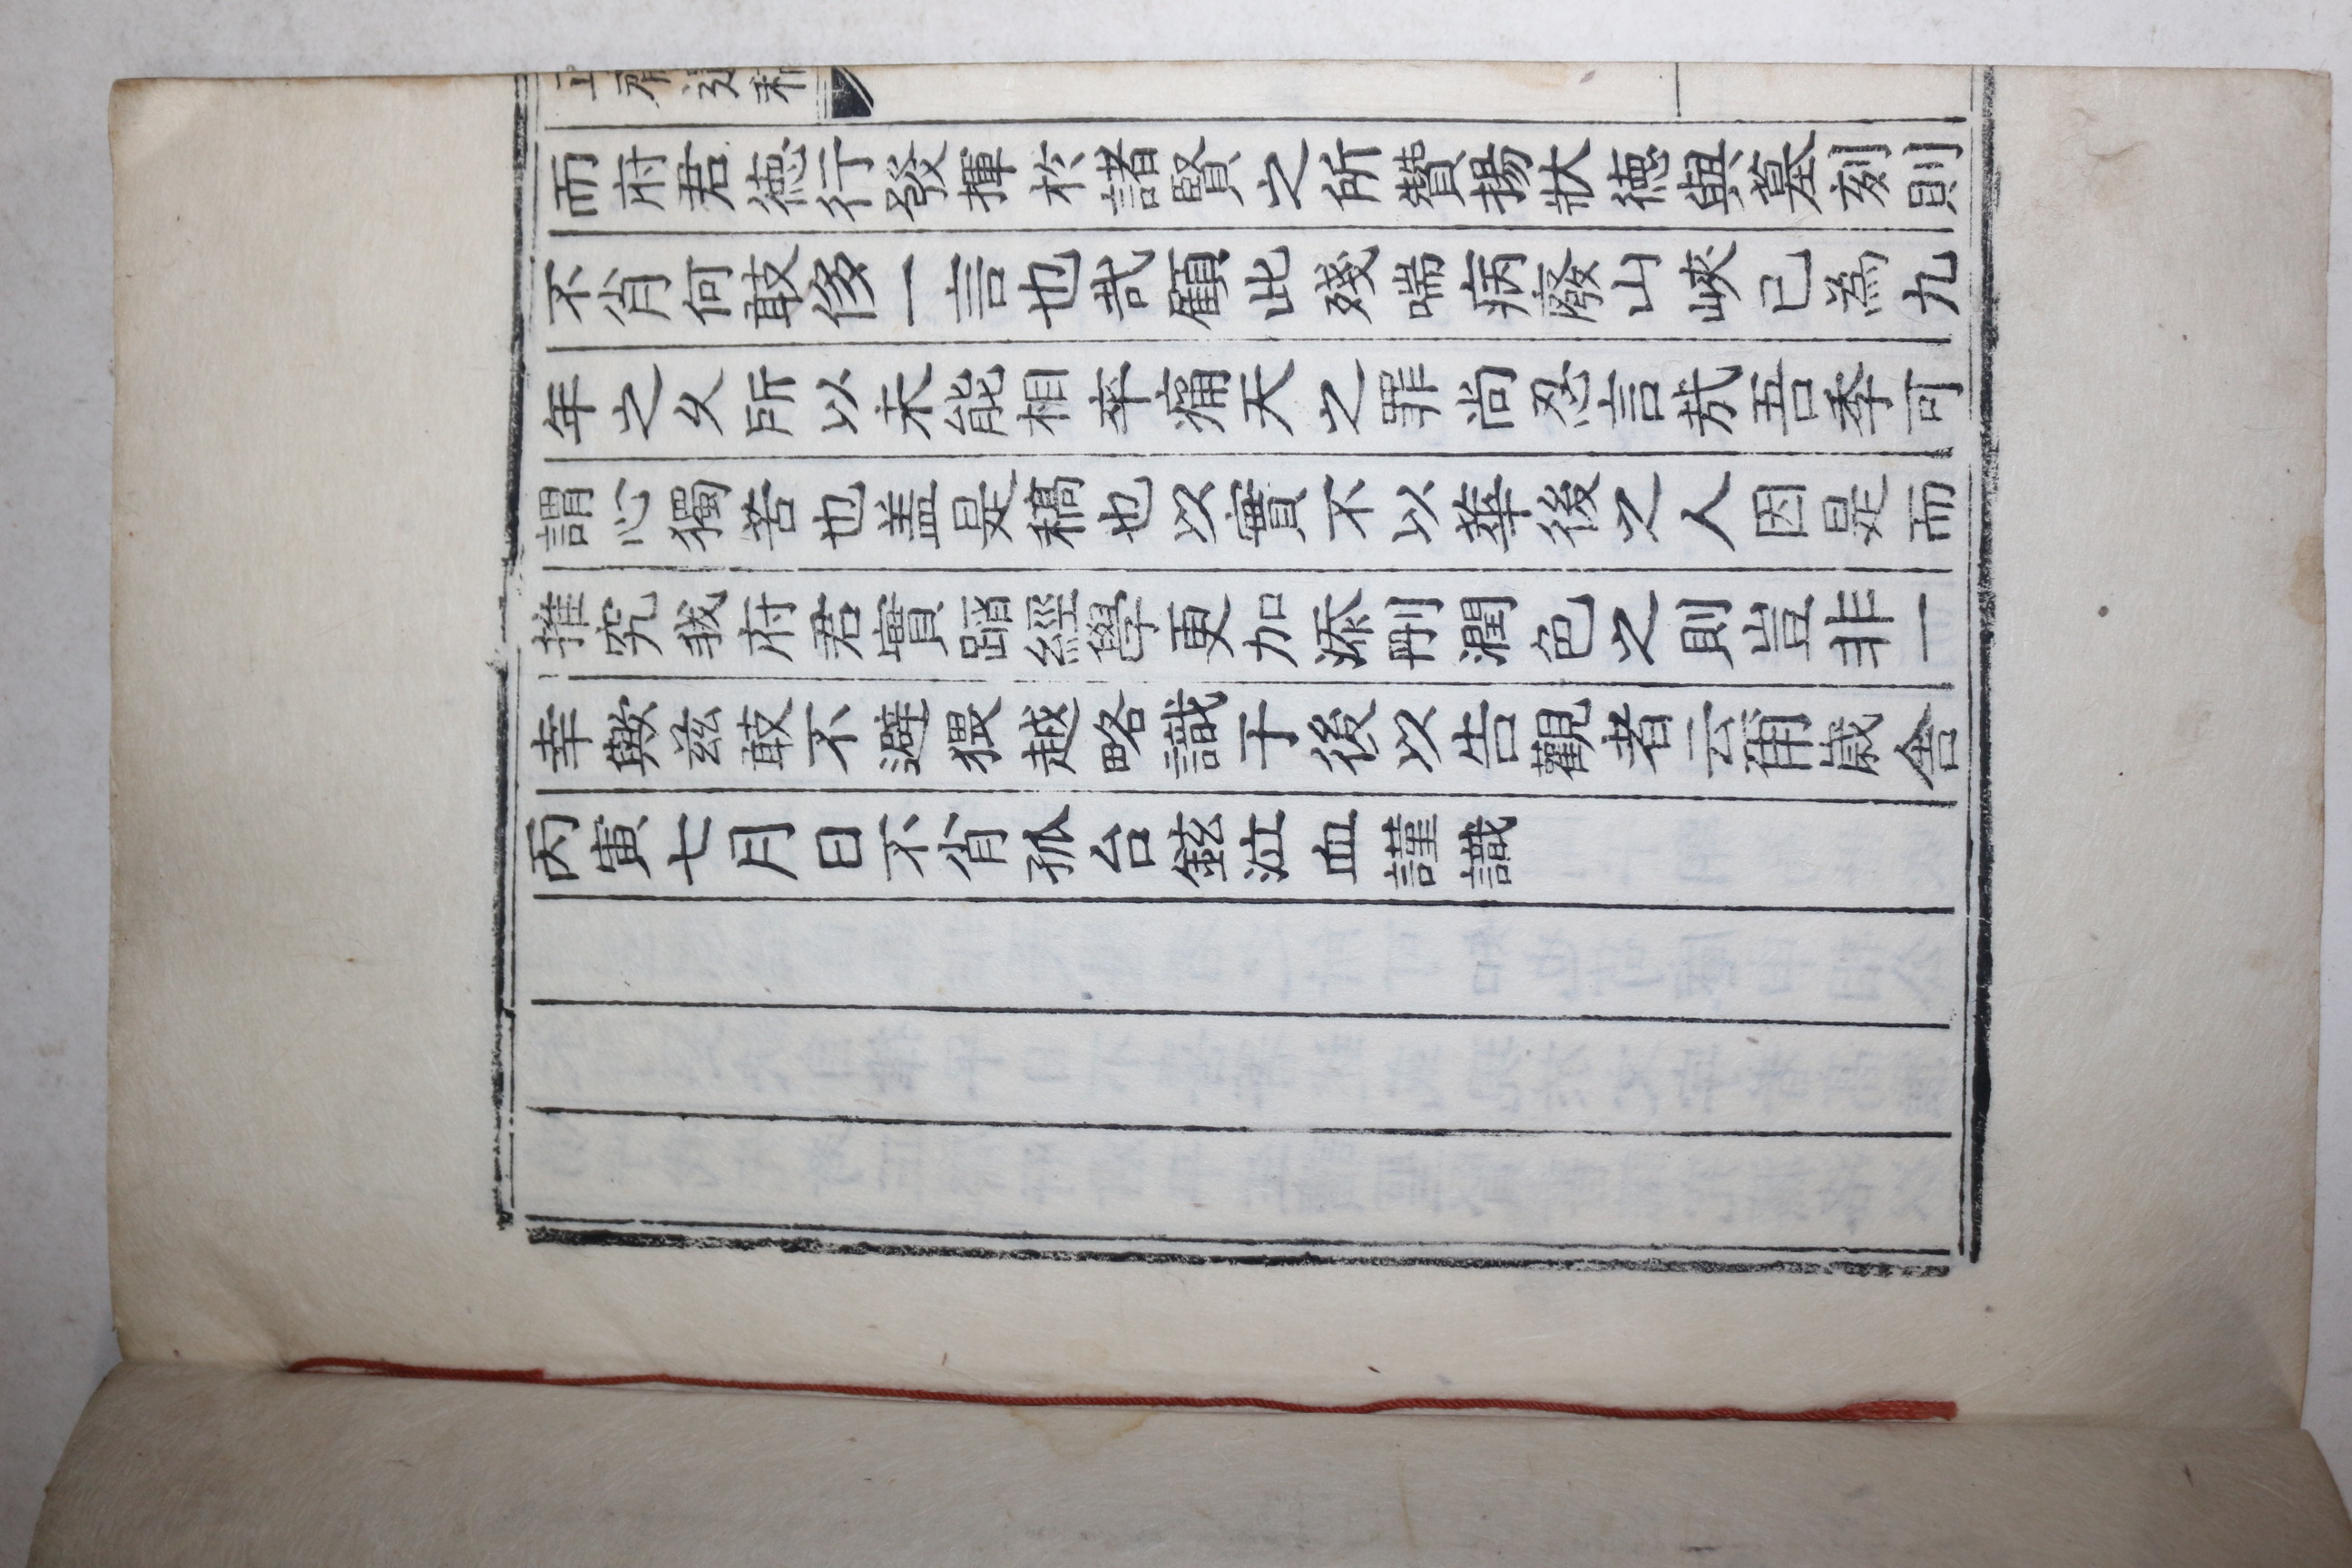 而府君德行發揮於諸賢之所贊揚狀德與墓刻則
不肖何敢侈一言也哉顧此殘喘病廢山峽已爲九
年之久所以未能相卒痛天之罪尚忍言哉吾季可
謂心獨苦也盖是稿也以實不以華後之人因是而
推究我府君實蹈經學更加添刪潤色之則豈非一
幸歟玆敢不避猥越略識于後以告觀者云甭歲舍
丙寅七月日不肖孤台鉉泣血謹識